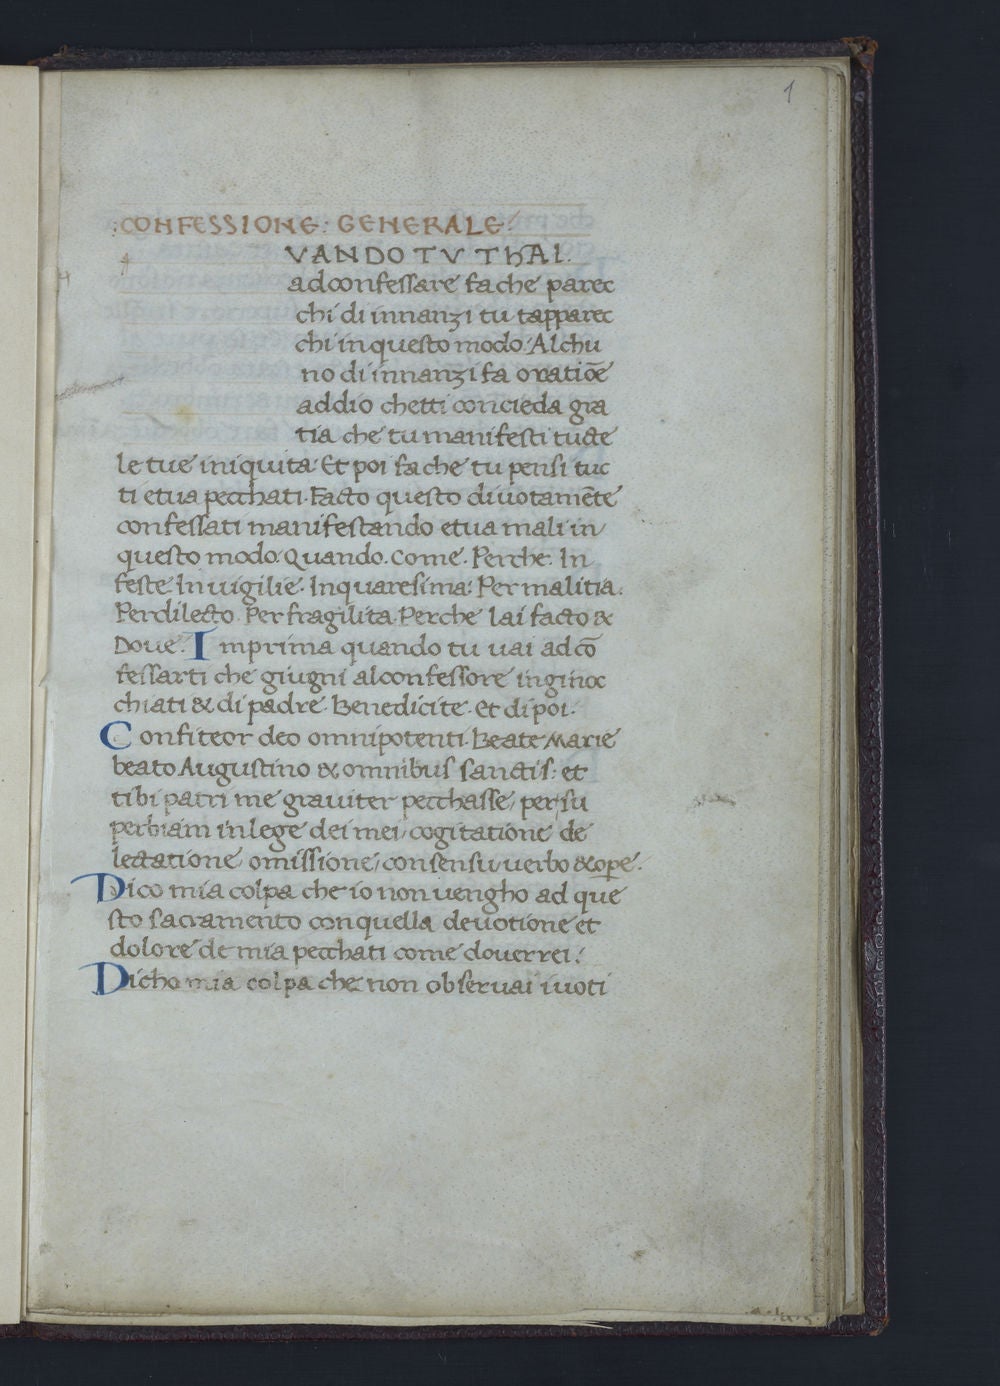 1
:CONFESSIONE: GENERALE:
VANDO TV THAI.
q
adconfessare fa che parec
chi di innanzi tu tapparec
chi in questo modo. Alchu
no di innanzi fa oratiōe
addio chetti concieda gra
tia che tu manifesti tucte
le tue iniquita. Et poi fa che tu pensi tuc
ti etua pecchati. Facto questo diuotamēte
confessati manifestando etua mali in
questo modo. Quando. Come. Perche. In
feste. In uigilie. In quaresima. Per malitia.
Per dilecto. Per fragilita. Perche lai facto &
Doue. Imprima quando tu uai ad cō
fessarti che giugni al confessore inginoc
chiati & di padre. Benedicite. et di poi.
Confiteor deo omnipotenti. Beate Marie
beato Augustino & omnibus sanctis: et
tibi patri me grauiter pecchasse, per su
perbiam in lege dei mei, cogitatione de
lectatione, omissione, consensu, uerbo & ope.
Dico mia colpa che io non uengho ad que
sto sacramento con quella deuotione et
dolore de mia pecchati come douerrei.
Dicho mia colpa che non obseruai i uoti